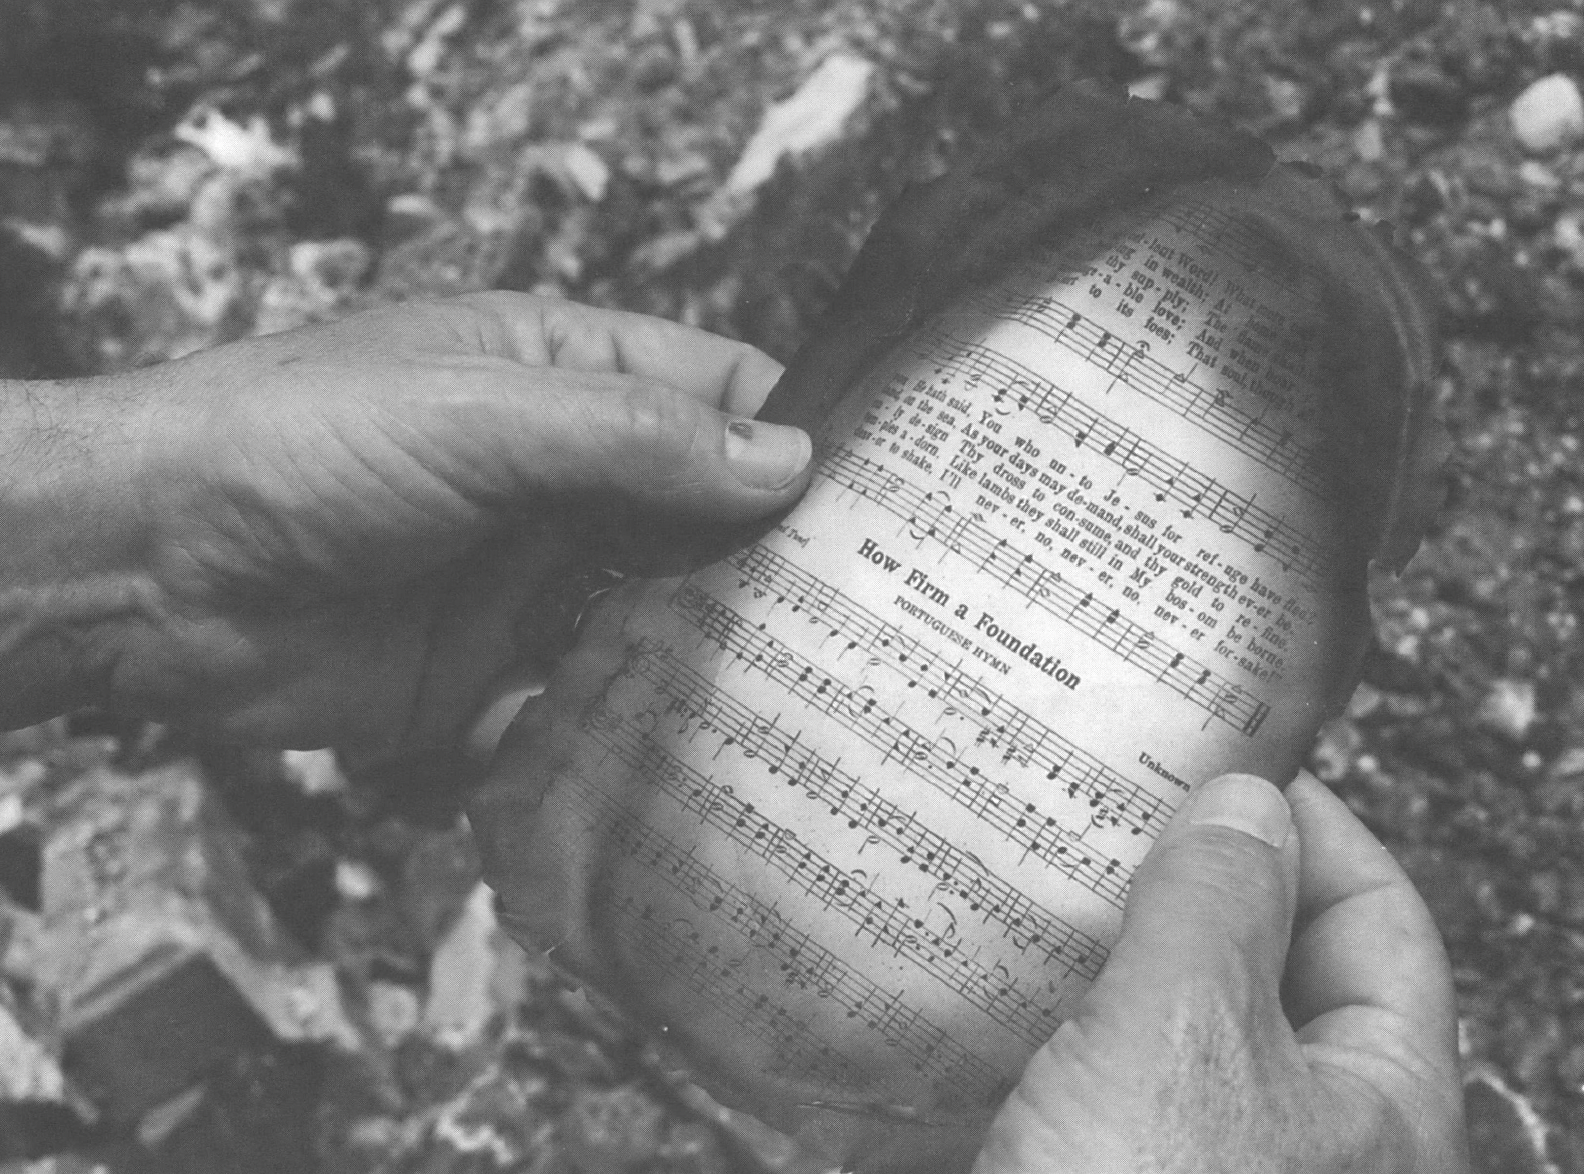 lent Word! What more
in wealth; At home
thy sup - ply; The flame shall
a - ble love; And when hoar
to its foes; That soul, though all
He hath said, You who un - to Je - sus for ref - uge have fled?
on the sea, As your days may de-mand, shall your strength ev-er be.
ly de-sign Thy dross to con-sume, and thy gold to re - fine.
tem-ples a-dorn, Like lambs they shall still in My bos - om be borne.
to shake, I'll nev - er, no, nev - er, no, nev - er for-sake!"
How Firm a Foundation
PORTUGUESE HYMN
Unknown